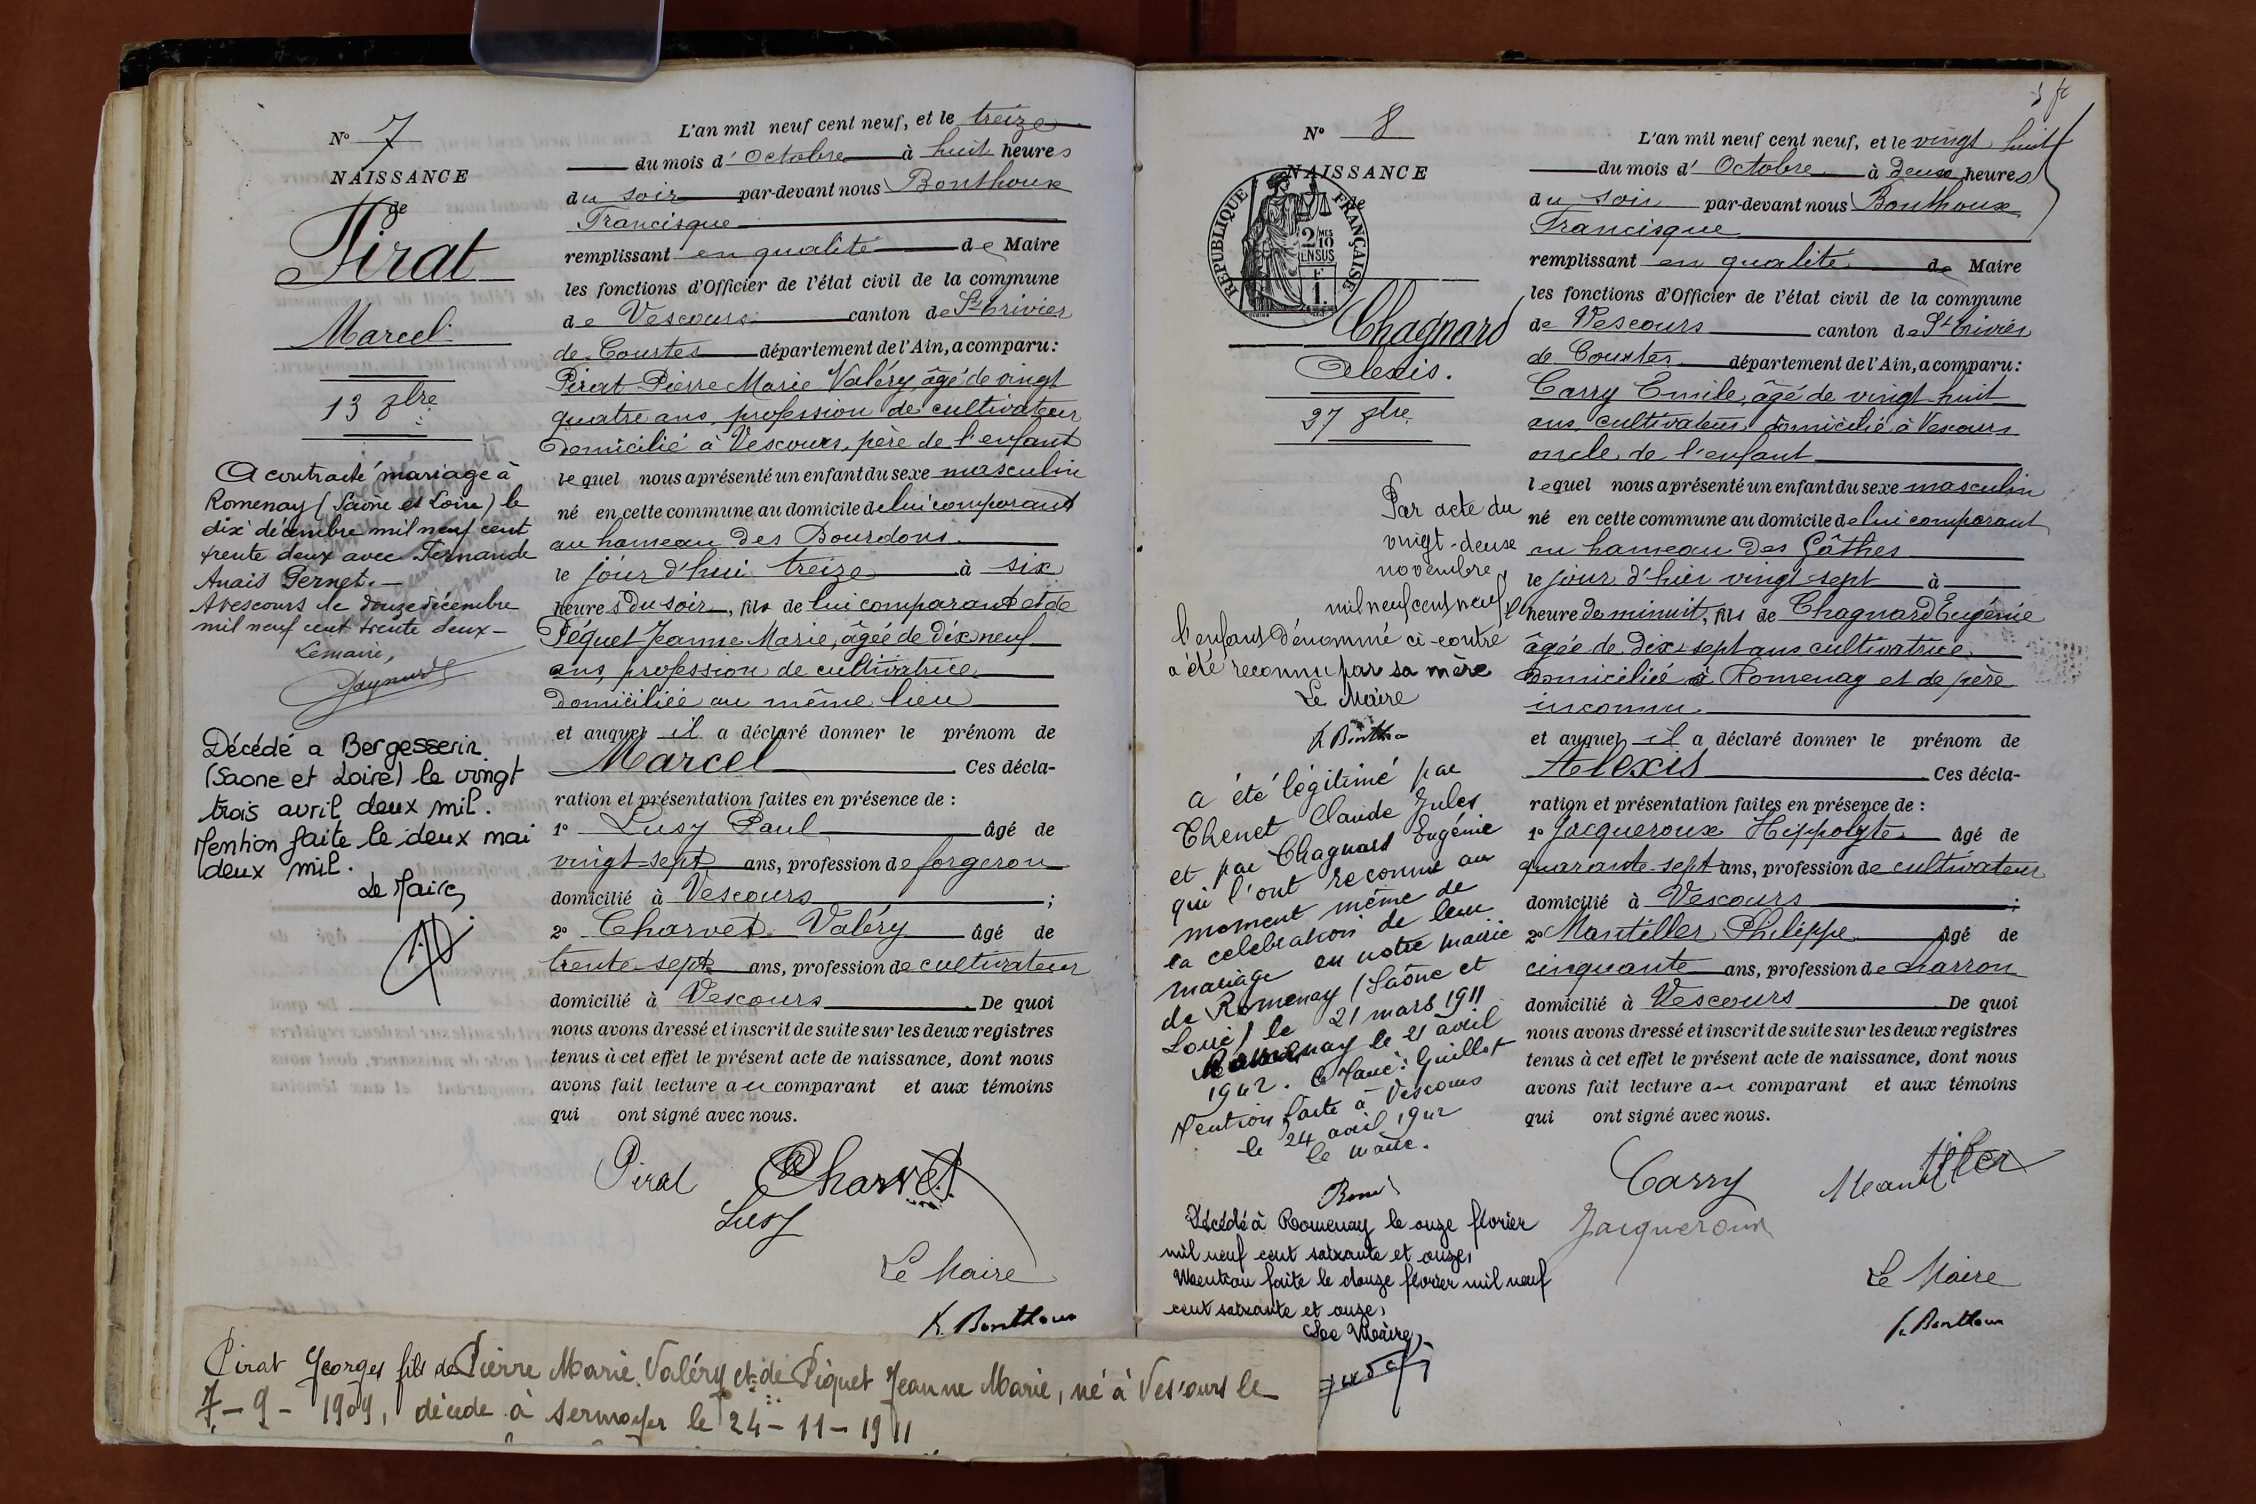 N° 7
NAISSANCE
de
Pirat
Marcel
13 8bre
A contracté mariage à
Romenay (Saône et Loire) le
dix décembre mil neuf cent
trente deux avec Fernande
Anais Pernet. —
A Vescours le douze décembre
mil neuf cent trente deux —
Le maire,
Décédé a Bergesserin
(Saone et Loire) le vingt
trois avril deux mil.
Mention faite le deux mai
deux mil.
Le Maire
L'an mil neuf cent neuf, et le treize
du mois d'Octobre à huit heures
du soir par-devant nous Bonthoux
Francisque
remplissant en qualité de Maire
les fonctions d'Officier de l'état civil de la commune
de Vescours canton de St Trivier
de Courtes département de l'Ain, a comparu:
Pirat Pierre Marie Valéry, âgé de vingt
quatre ans, profession de cultivateur
domicilié à Vescours, père de l'enfant
lequel nous a présenté un enfant du sexe masculin
né en cette commune au domicile de lui comparant
au hameau des Bourdons
le jour d'hui treize à six
heures du soir, fils de lui comparant et de
Péquet Jeanne Marie, âgée de dix neuf
ans, profession de cultivatrice
domiciliée au même lieu
et auquel il a déclaré donner le prénom de
Marcel Ces décla-
ration et présentation faites en présence de :
1° Lusy Paul âgé de
vingt-sept ans, profession de forgeron
domicilié à Vescours ;
2° Charvet Valéry âgé de
trente-sept ans, profession de cultivateur
domicilié à Vescours De quoi
nous avons dressé et inscrit de suite sur les deux registres
tenus à cet effet le présent acte de naissance, dont nous
avons fait lecture au comparant et aux témoins
qui ont signé avec nous.
Pirat Charvet
Lusy
Le Maire
F. Bonthoux
Pirat Georges fils de Pierre Marie Valéry et de Piquet Jeanne Marie, né à Vescours le
7 - 9 - 1909, décéde à Sermoyer le 24 - 11 - 1911
N° 8
NAISSANCE
de
RÉPUBLIQUE FRANÇAISE
2 MES
10
EN SUS
F
1.
Chagnard
Alexis.
27 8bre
Par acte du
vingt-deux
novembre
mil neuf cent neuf
l'enfant dénommé ci-contre
a été reconnu par sa mère
Le Maire
F. Bonthoux
a été légitimé par
Thenet Claude Jules
et par Chagnard Eugénie
qui l'ont reconnu au
moment même de
la celebration de leur
mariage en notre mairie
de Romenay (Saône et
Loire) le 21 mars 1911
Romenay le 21 avril
1942. Le Maire: Guillot
Mention faite à Vescours
le 24 avril 1942
le maire.
Décédé à Romenay le onze février
mil neuf cent soixante et onze,
Mention faite le douze février mil neuf
cent soixante et onze,
Le Maire,
L'an mil neuf cent neuf, et le vingt huit
du mois d'Octobre à deux heures
du soir par-devant nous Bonthoux
Francisque
remplissant en qualité de Maire
les fonctions d'Officier de l'état civil de la commune
de Vescours canton de St Trivier
de Courtes département de l'Ain, a comparu:
Carry Emile, âgé de vingt-huit
ans cultivateur domicilié à Vescours
oncle de l'enfant
lequel nous a présenté un enfant du sexe masculin
né en cette commune au domicile de lui comparant
au hameau des Gâthes
le jour d'hier vingt sept à
heure de minuit, fils de Chagnard Eugénie
âgée de dix-sept ans cultivatrice
domiciliée à Romenay et de père
inconnu
et auquel il a déclaré donner le prénom de
Alexis Ces décla-
ration et présentation faites en présence de :
1° Jacqueroux Hippolyte âgé de
quarante-sept ans, profession de cultivateur
domicilié à Vescours ;
2° Mantiller Philippe âgé de
cinquante ans, profession de charron
domicilié à Vescours De quoi
nous avons dressé et inscrit de suite sur les deux registres
tenus à cet effet le présent acte de naissance, dont nous
avons fait lecture au comparant et aux témoins
qui ont signé avec nous.
Carry Mantiller
Jacqueroux
Le Maire
F. Bonthoux